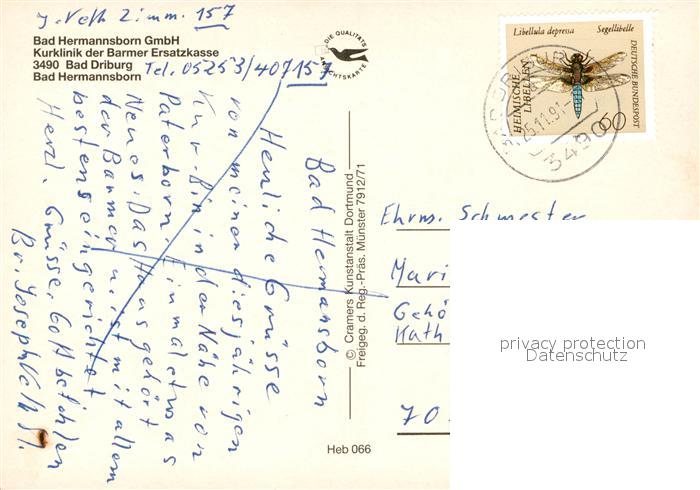 J. Veth Zimm. 157
Bad Hermannsborn GmbH
Kurklinik der Barmer Ersatzkasse
3490 Bad Driburg
Bad Hermannsborn
Tel. 05253/407157
DIE QUALITÄTS
ANSICHTSKARTE
Libellula depressa Segellibelle
HEIMISCHE
LIBELLEN
DEUTSCHE BUNDESPOST
60
BAD DRIBURG
25.11.91
3490
Bad Hermansborn
Herzliche Grüsse
von meiner diesjährigen
Kur. Bin in der Nähe von
Paterborn. Einmal etwas
Neues. Das Haus gehört
der Barmer u. ist mit allem
bestens eingerichtet
Herzl. Grüsse, Gott befohlen
Br. Joseph Veth
© Cramers Kunstanstalt Dortmund
Freigeg. d. Reg.-Präs. Münster 7912/71
Heb 066
Ehrw. Schwester
Mari
Gehö
Kath
70
privacy protection
Datenschutz